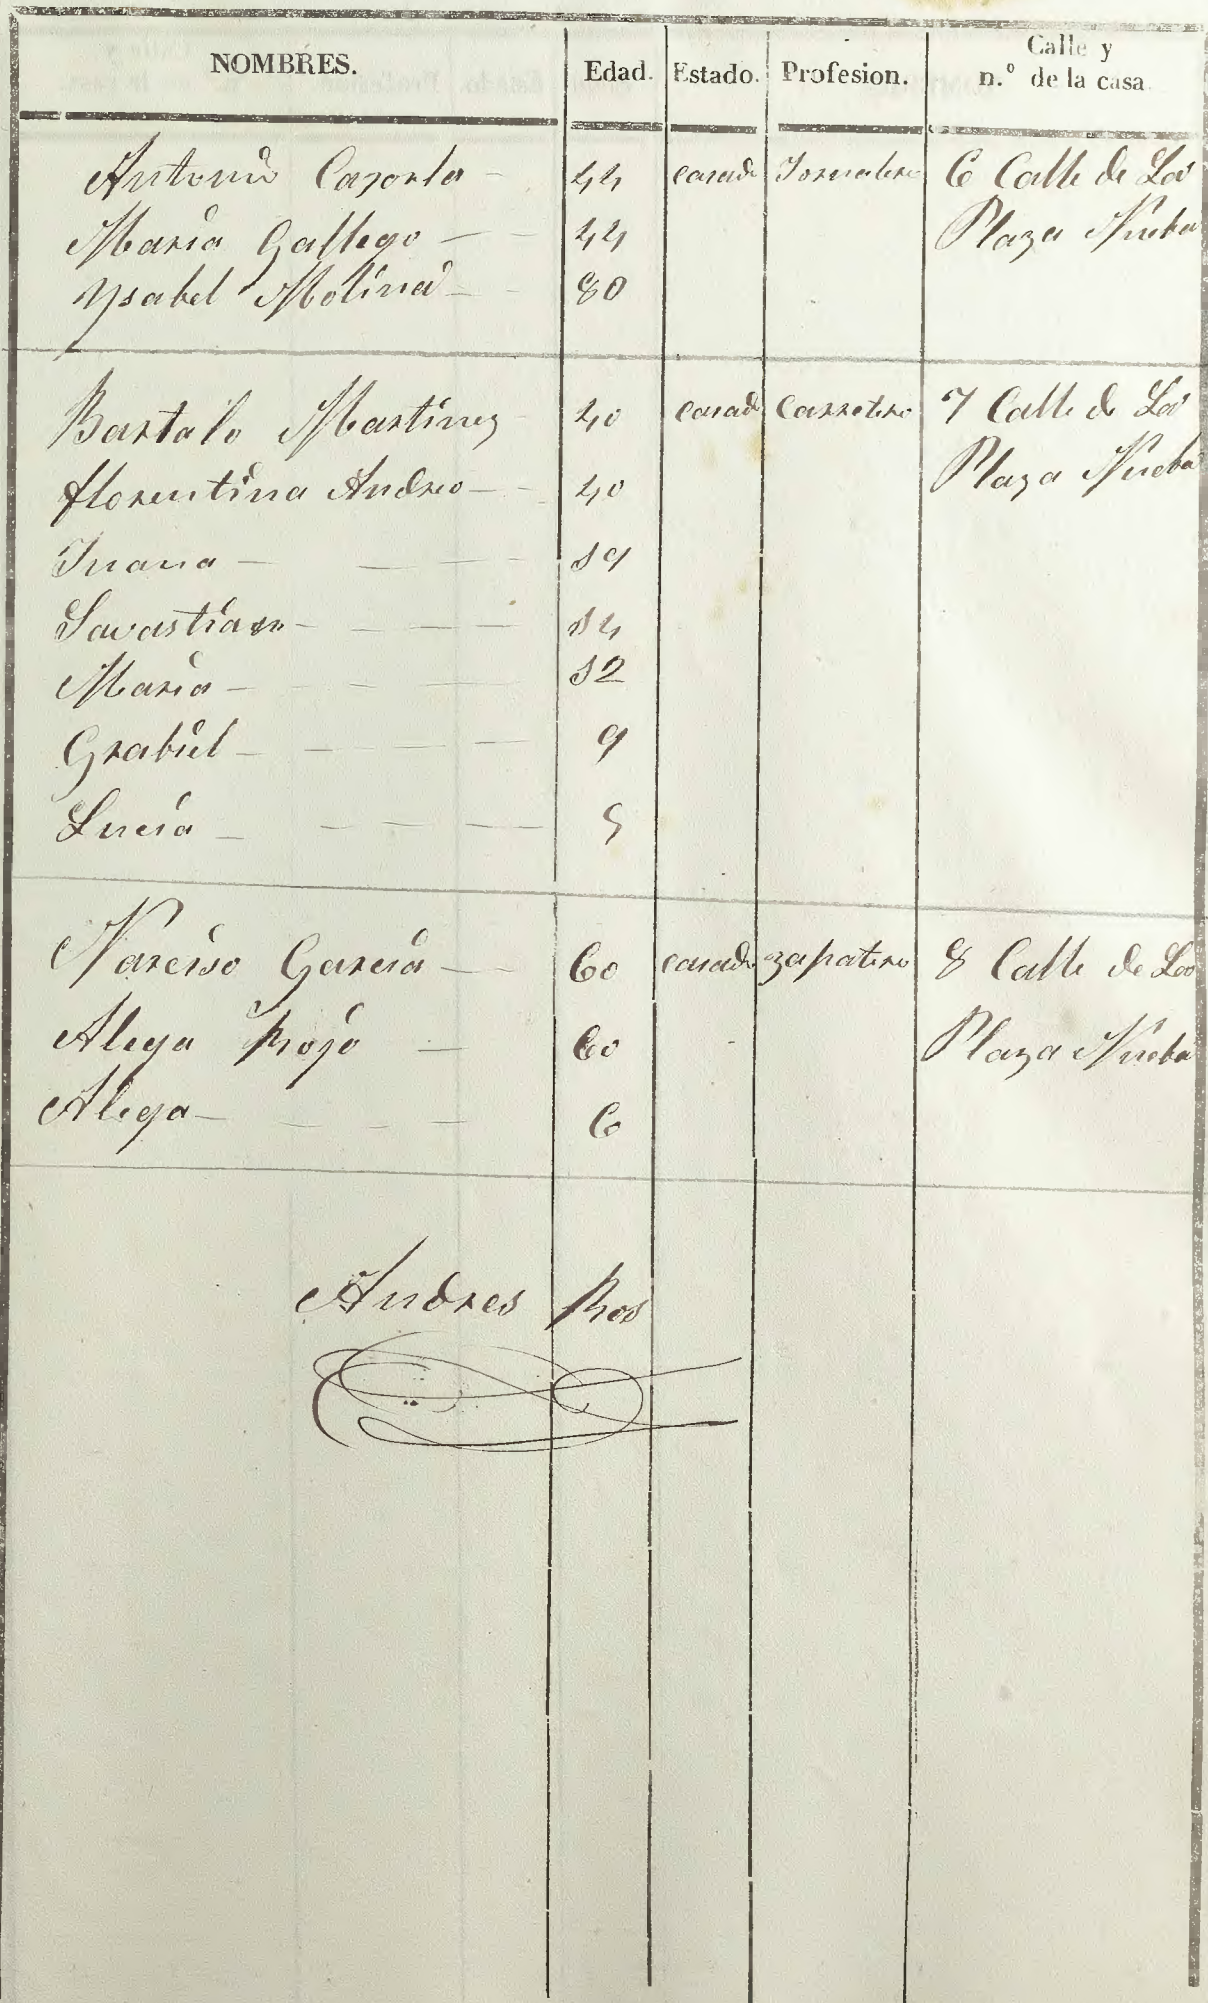 NOMBRES. Edad. Estado. Profesion. Calle y n.º de la casa.
Antonio Cazorla 44 casado Jornalero 6 Calle de La
Maria Gallego 44 Plaza Nueba
Ysabel Molina 80
Bartalo Martinez 40 casado Carretero 7 Calle de La
florentina Andreo 40 Plaza Nueba
Juana 19
Savastian 14
Maria 12
Grabiel 9
Lucia 5
Narciso Garcia 60 casado zapatero 8 Calle de La
Alega Rojo 60 Plaza Nueba
Alega 6
Andres Ros